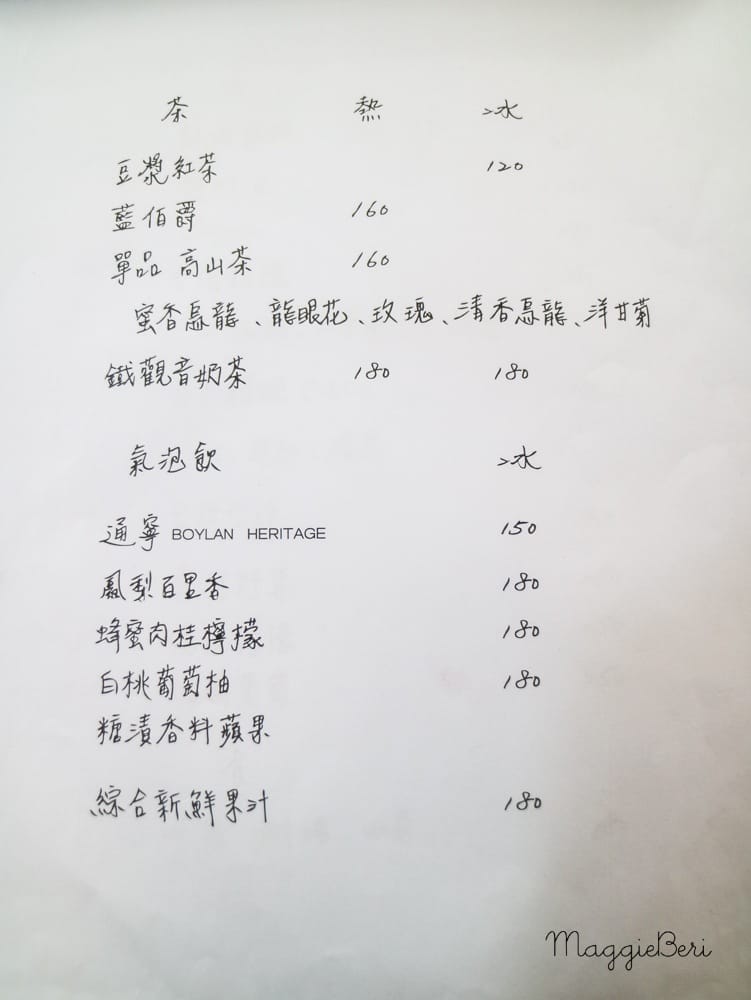 茶 熱 冰
豆漿紅茶 120
藍伯爵 160
單品 高山茶 160
蜜香烏龍、龍眼花、玫瑰、清香烏龍、洋甘菊
鐵觀音奶茶 180 180
氣泡飲 冰
通寧 BOYLAN HERITAGE 150
鳳梨百里香 180
蜂蜜肉桂檸檬 180
白桃葡萄柚 180
糖漬香料蘋果
綜合新鮮果汁 180
MaggieBeri